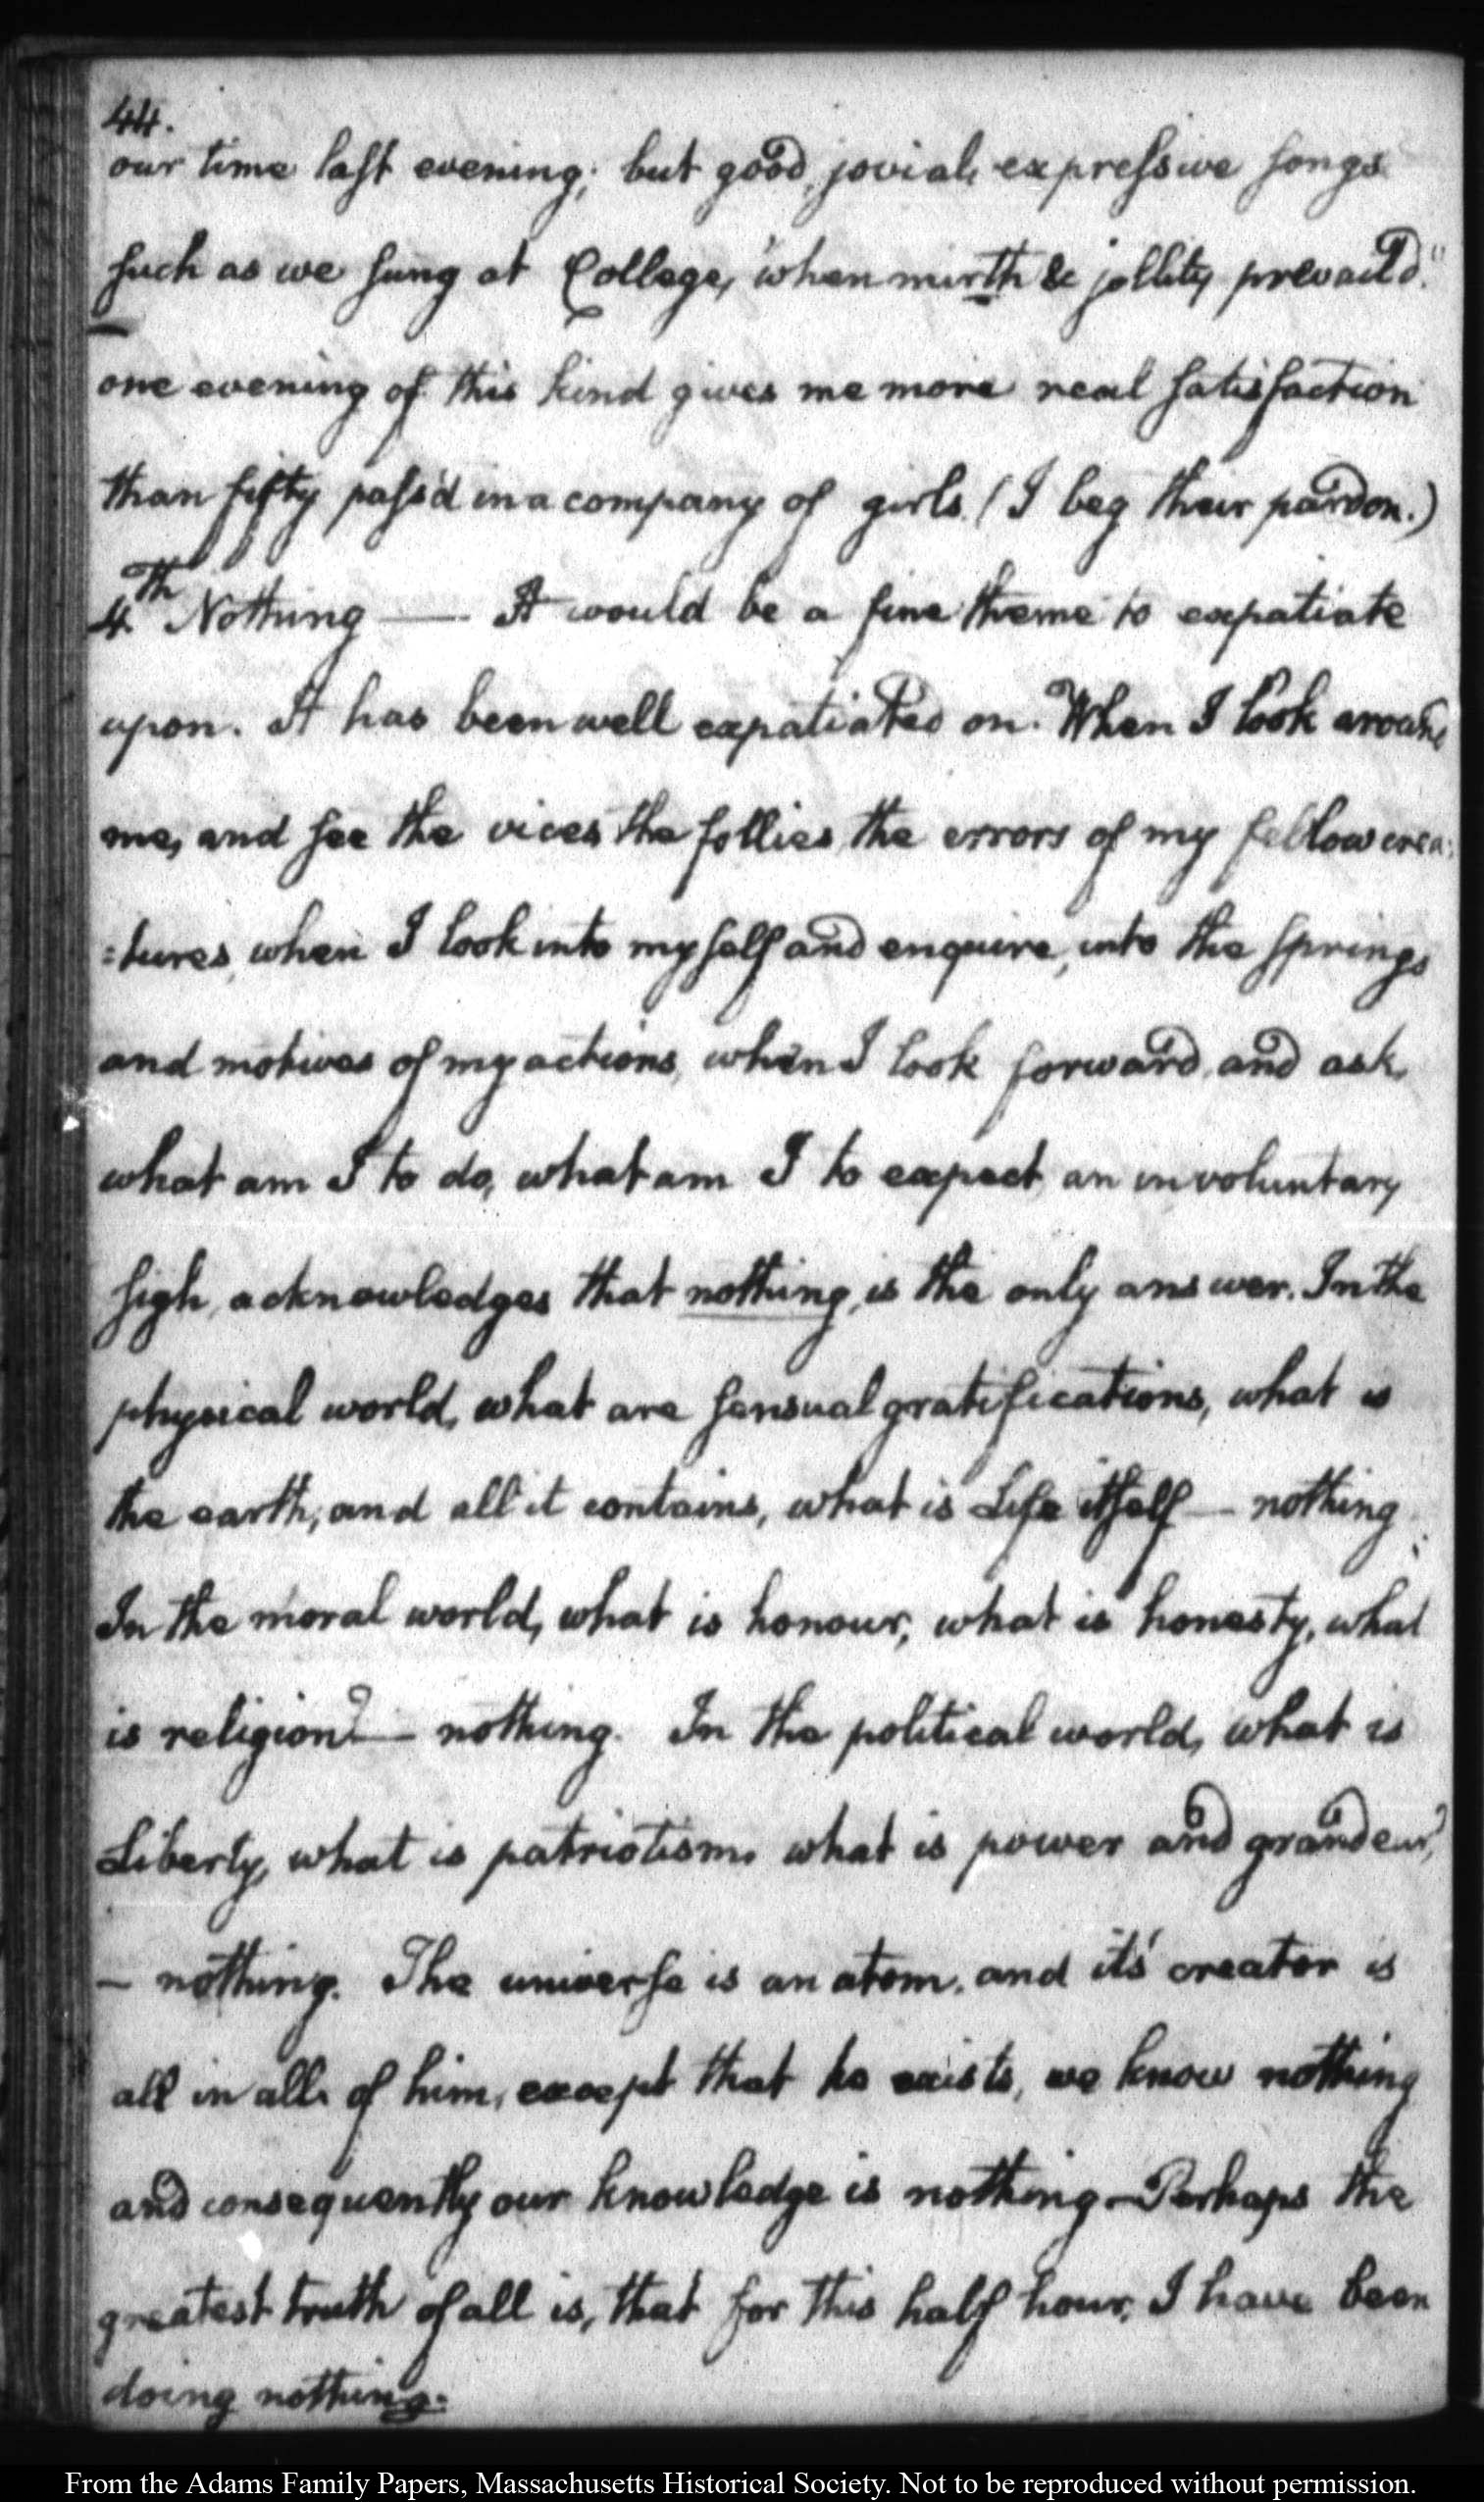 44.
our time last evening; but good, jovial, expressive songs
such as we sung at College, "when mirth & jollity prevail'd."
one evening of this kind gives me more real satisfaction
than fifty pass'd in a company of girls. (I beg their pardon.)
4th Nothing — It would be a fine theme to expatiate
upon. It has been well expatiated on. When I look around
me, and see the vices, the follies, the errors of my fellow crea:
:tures, when I look into myself and enquire, into the springs
and motives of my actions, when I look forward, and ask,
what am I to do, what am I to expect, an involuntary
sigh, acknowledges that nothing, is the only answer. In the
physical world, what are sensual gratifications, what is
the earth, and all it contains, what is Life itself — nothing.
In the moral world, what is honour, what is honesty, what
is religion? — nothing. In the political world, what is
Liberty, what is patriotism, what is power and grandeur?
— nothing. The universe is an atom, and its' creator is
all in all. of him, except that he exists, we know nothing
and consequently our knowledge is nothing — Perhaps the
greatest truth of all is, that for this half hour, I have been
doing nothing.
From the Adams Family Papers, Massachusetts Historical Society. Not to be reproduced without permission.